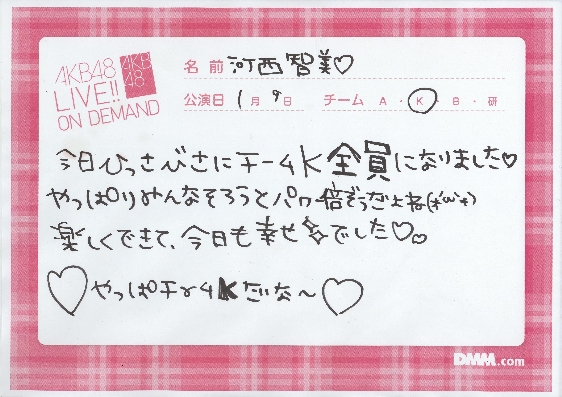 AKB48
LIVE!!
ON DEMAND
AKB
48
名前 河西智美♡
公演日 1月9日 チーム A・K・B・研
今日ひっさびさにチームK全員になりました♡
やっぱりみんなそろうとパワー倍ぞうだよね
楽しくできて、今日も幸せでした♡♡
♡やっぱチームKだな〜♡
DMM.com